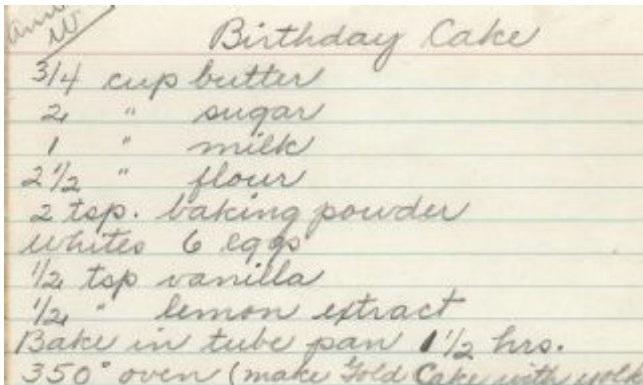 W
Birthday Cake
3/4 cup butter
2 " sugar
1 " milk
2 1/2 " flour
2 tsp. baking powder
whites 6 eggs
1/2 tsp vanilla
1/2 " lemon extract
Bake in tube pan 1 1/2 hrs.
350° oven (make Gold Cake with yolk